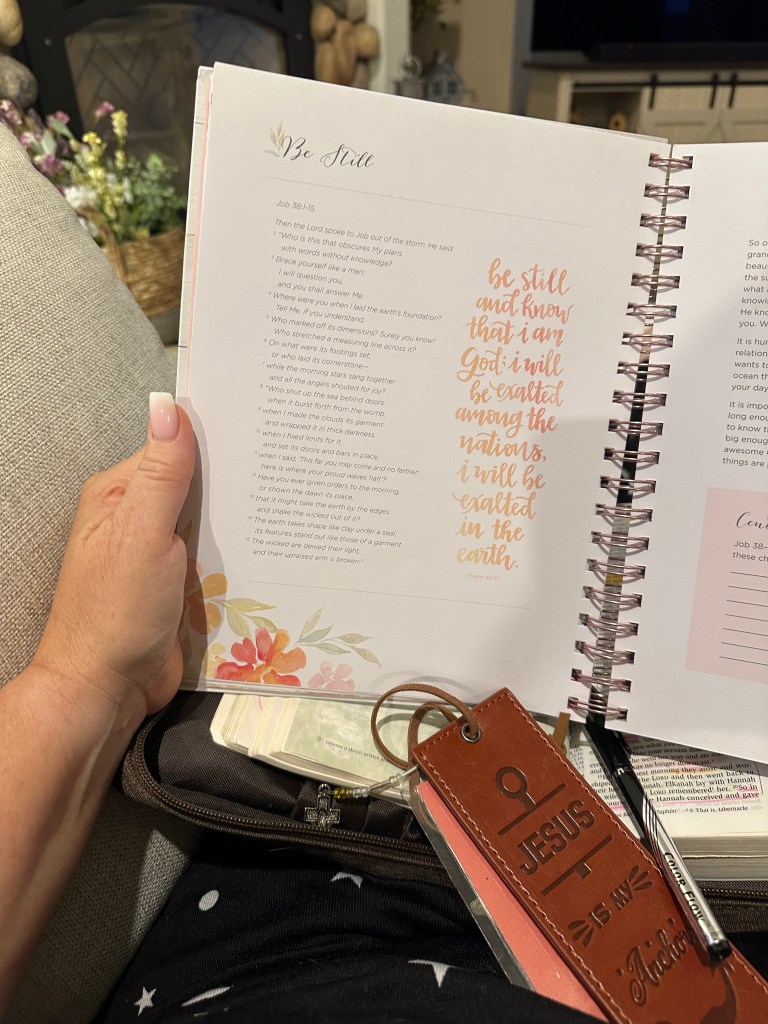 Be Still
Job 38:1-15
Then the Lord spoke to Job out of the storm. He said:
2 "Who is this that obscures My plans
with words without knowledge?
3 Brace yourself like a man;
I will question you,
and you shall answer Me.
4 Where were you when I laid the earth's foundation?
Tell Me, if you understand.
5 Who marked off its dimensions? Surely you know!
Who stretched a measuring line across it?
6 On what were its footings set,
or who laid its cornerstone—
7 while the morning stars sang together
and all the angels shouted for joy?
8 "Who shut up the sea behind doors
when it burst forth from the womb,
9 when I made the clouds its garment
and wrapped it in thick darkness,
10 when I fixed limits for it
and set its doors and bars in place,
11 when I said, 'This far you may come and no farther;
here is where your proud waves halt'?
12 Have you ever given orders to the morning,
or shown the dawn its place,
13 that it might take the earth by the edges
and shake the wicked out of it?
14 The earth takes shape like clay under a seal;
its features stand out like those of a garment.
15 The wicked are denied their light,
and their upraised arm is broken."
be still
and know
that i am
God; i will
be exalted
among the
nations,
i will be
exalted
in the
earth.
Psalm 46:10
So o
gran
beau
the su
what a
knowin
He kno
you. W
It is hur
relation
wants to
ocean th
your day
It is impo
long enou
to know th
big enoug
awesome
things are
Job 38-
these ch
morning they arose and wor-
LORD and then went back to
Elkanah lay with Hannah
LORD remembered her. 20 So in
Hannah conceived and gave
That is, tabernacle.
JESUS
IS MY
Anchor
COLOR FLOW